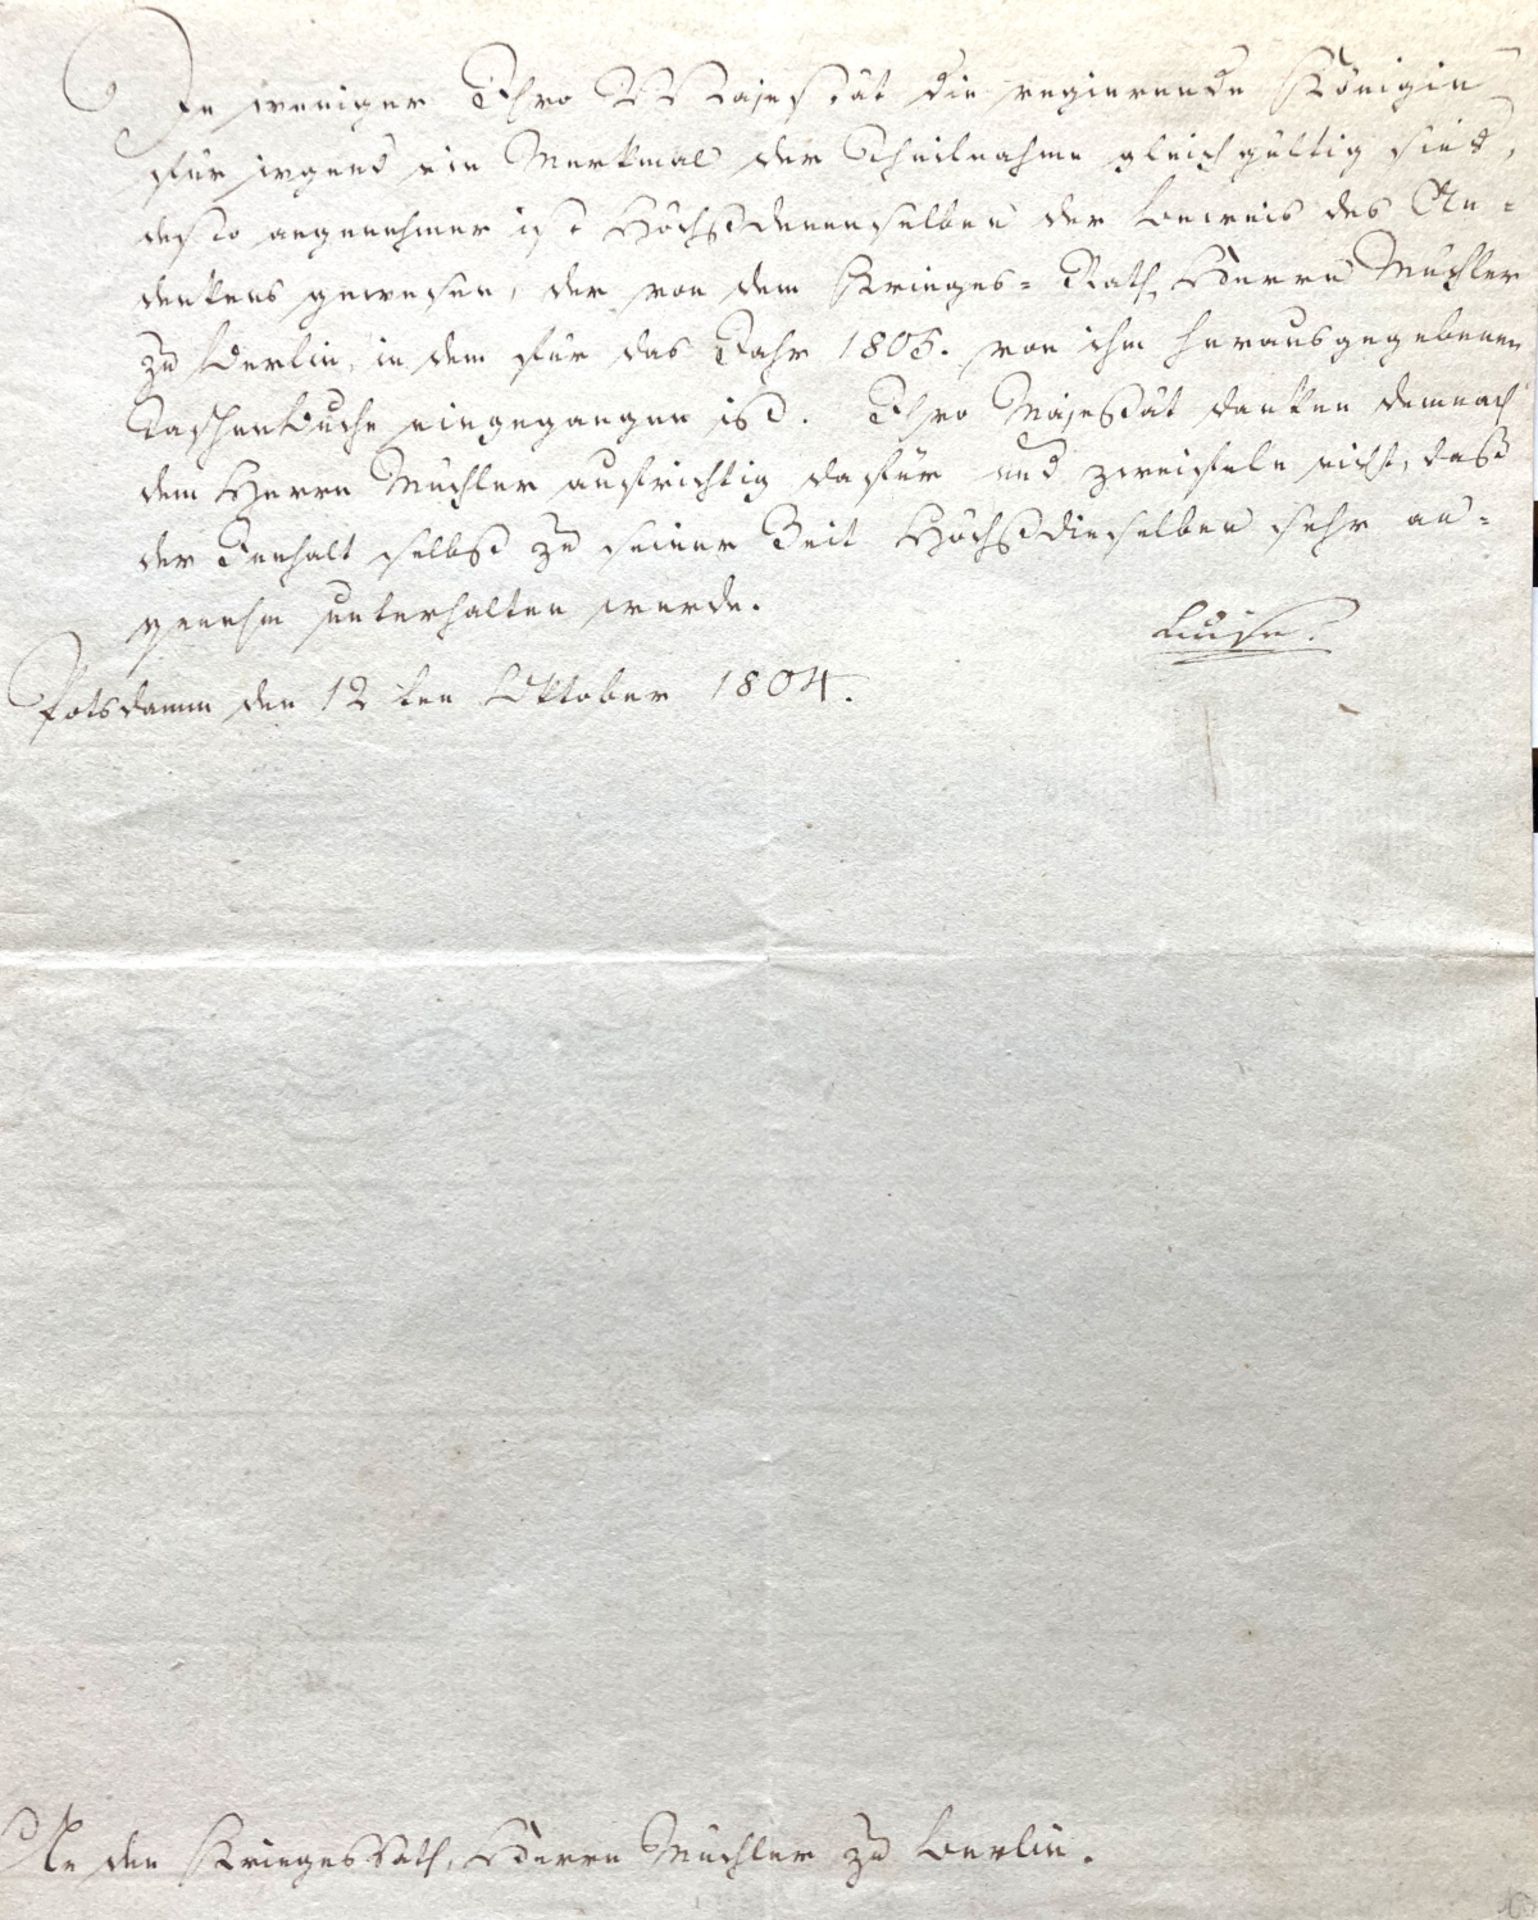 Je weniger Ihro Majestät die regierende Königin
für irgend ein Merkmal der Theilnahme gleichgültig sind,
desto angenehmer ist Höchstdenenselben der Beweis des An=
denkens gewesen, der von dem Krieges=Rath, Herrn Müchler
zu Berlin, in dem für das Jahr 1805. von ihm herausgegebenen
Taschenbuche eingegangen ist. Ihro Majestät danken demnach
dem Herrn Müchler aufrichtig dafür und zweifeln nicht, daß
der Innhalt selbst zu seiner Zeit Höchstdieselben sehr an=
genehm unterhalten werde.
Luise.
Potsdamm den 12ten Oktober 1804.
An den KriegesRath, Herrn Müchler zu Berlin.